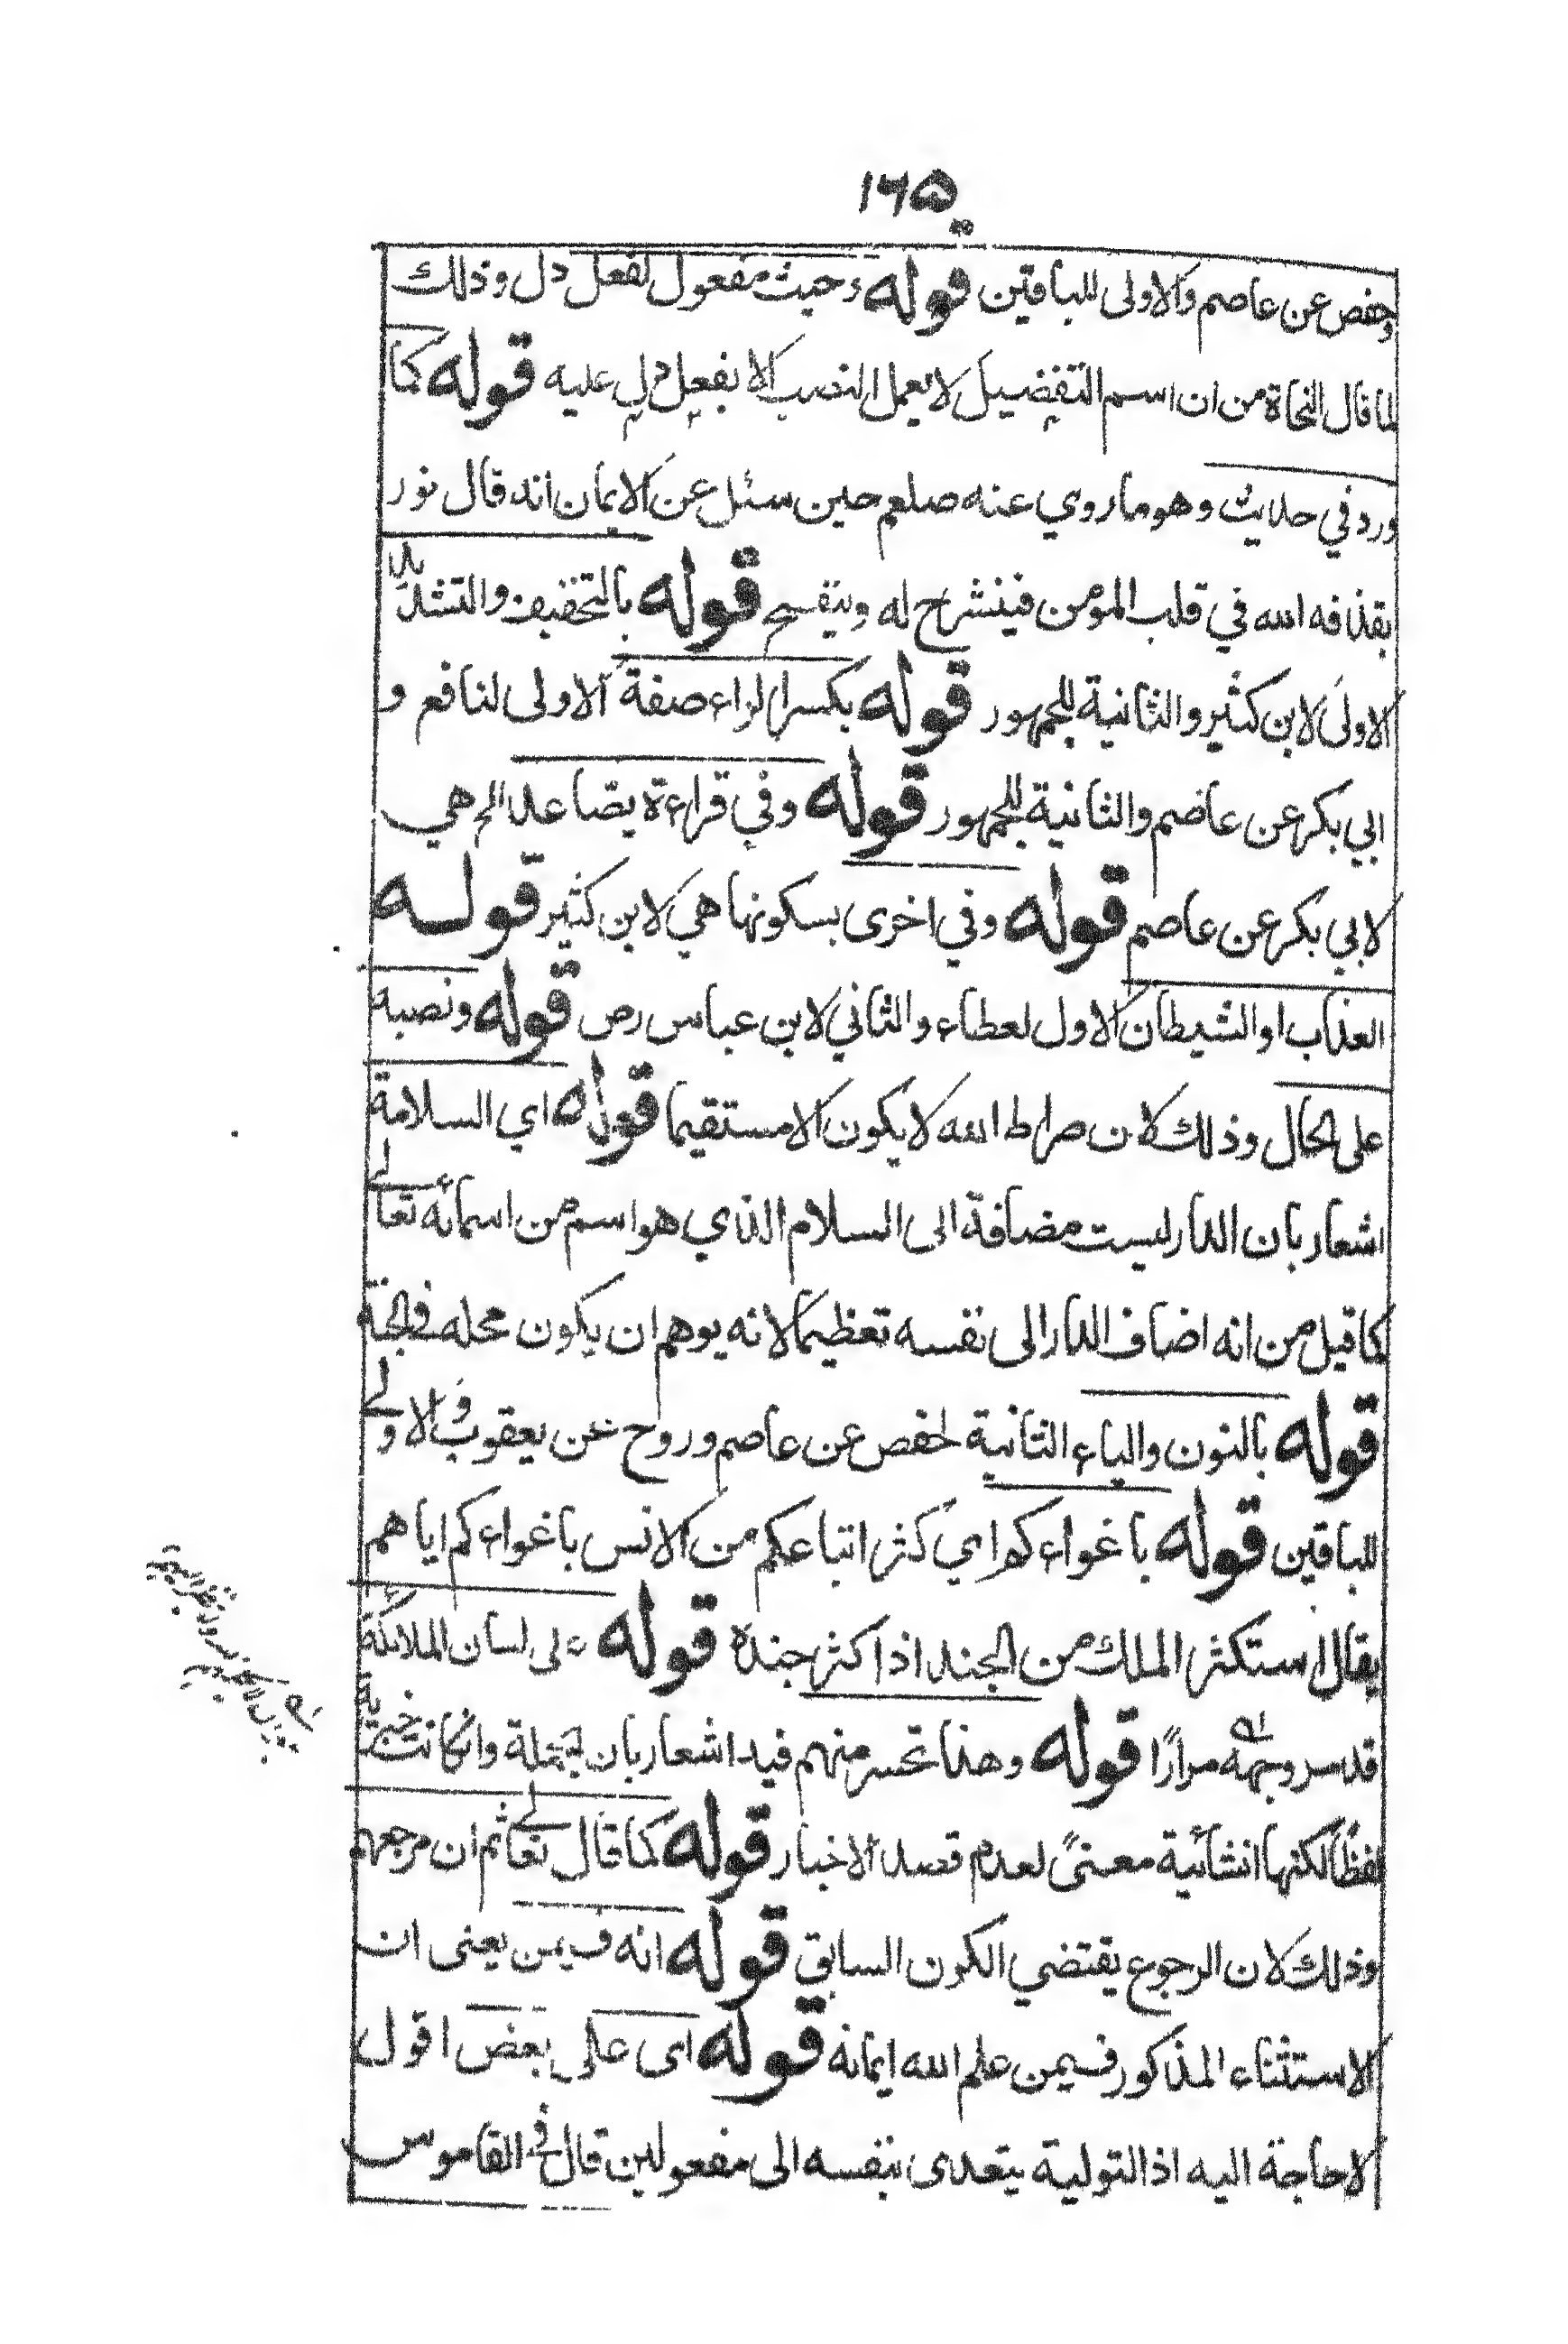 ١٦٥
وحفص عن عاصم والاولى للباقين قوله وحيث مفعول لفعل دل وذلك
لما قال النحاة من ان اسم التفضيل لا يعمل النصب الا بفعل دل عليه قوله كما
ورد في حديث وهو ما روي عنه صلعم حين سئل عن الايمان انه قال نور
يقذفه الله في قلب المومن فينشرح له وينفسح قوله بالتخفيف والتشديد
الاولى لابن كثير والثانية للجمهور قوله بكسر الراء صفة الاولى لنافع و
ابي بكر عن عاصم والثانية للجمهور قوله وفي قراءة يصّاعد الخ هي
لابي بكر عن عاصم قوله وفي اخرى بسكونها هي لابن كثير قوله
العذاب او الشيطان الاول لعطاء والثاني لابن عباس رض قوله ونصبه
على الحال وذلك لان صراط الله لا يكون الا مستقيما قوله اي السلامة
اشعار بان الدار ليست مضافة الى السلام الذي هو اسم من اسمائه تعالى
كما قيل من انه اضاف الدار الى نفسه تعظيما لانه يوهم ان يكون محله في الجنة
قوله بالنون والياء الثانية لحفص عن عاصم وروح عن يعقوب والاولى
للباقين قوله باغواءكم اي كثر اتباعكم من الانس باغواءكم اياهم
يقال استكثر الملك من الجند اذا كثر جنده قوله على لسان الملائكة
قد مر وجهه مرارًا قوله وهذا تحسر منهم فيه اشعار بان الجملة وان كانت خبرية
لفظًا لكنها انشائية معنىً لعدم قصد الاخبار قوله كما قال تعالى ثم ان مرجعهم
وذلك لان الرجوع يقتضي الكون السابق قوله انه فيمن يعنى ان
الاستثناء المذكور فيمن علم الله ايمانه قوله اى على بعض اقول
لا حاجة اليه اذ التولية يتعدى بنفسه الى مفعولين قال في القاموس